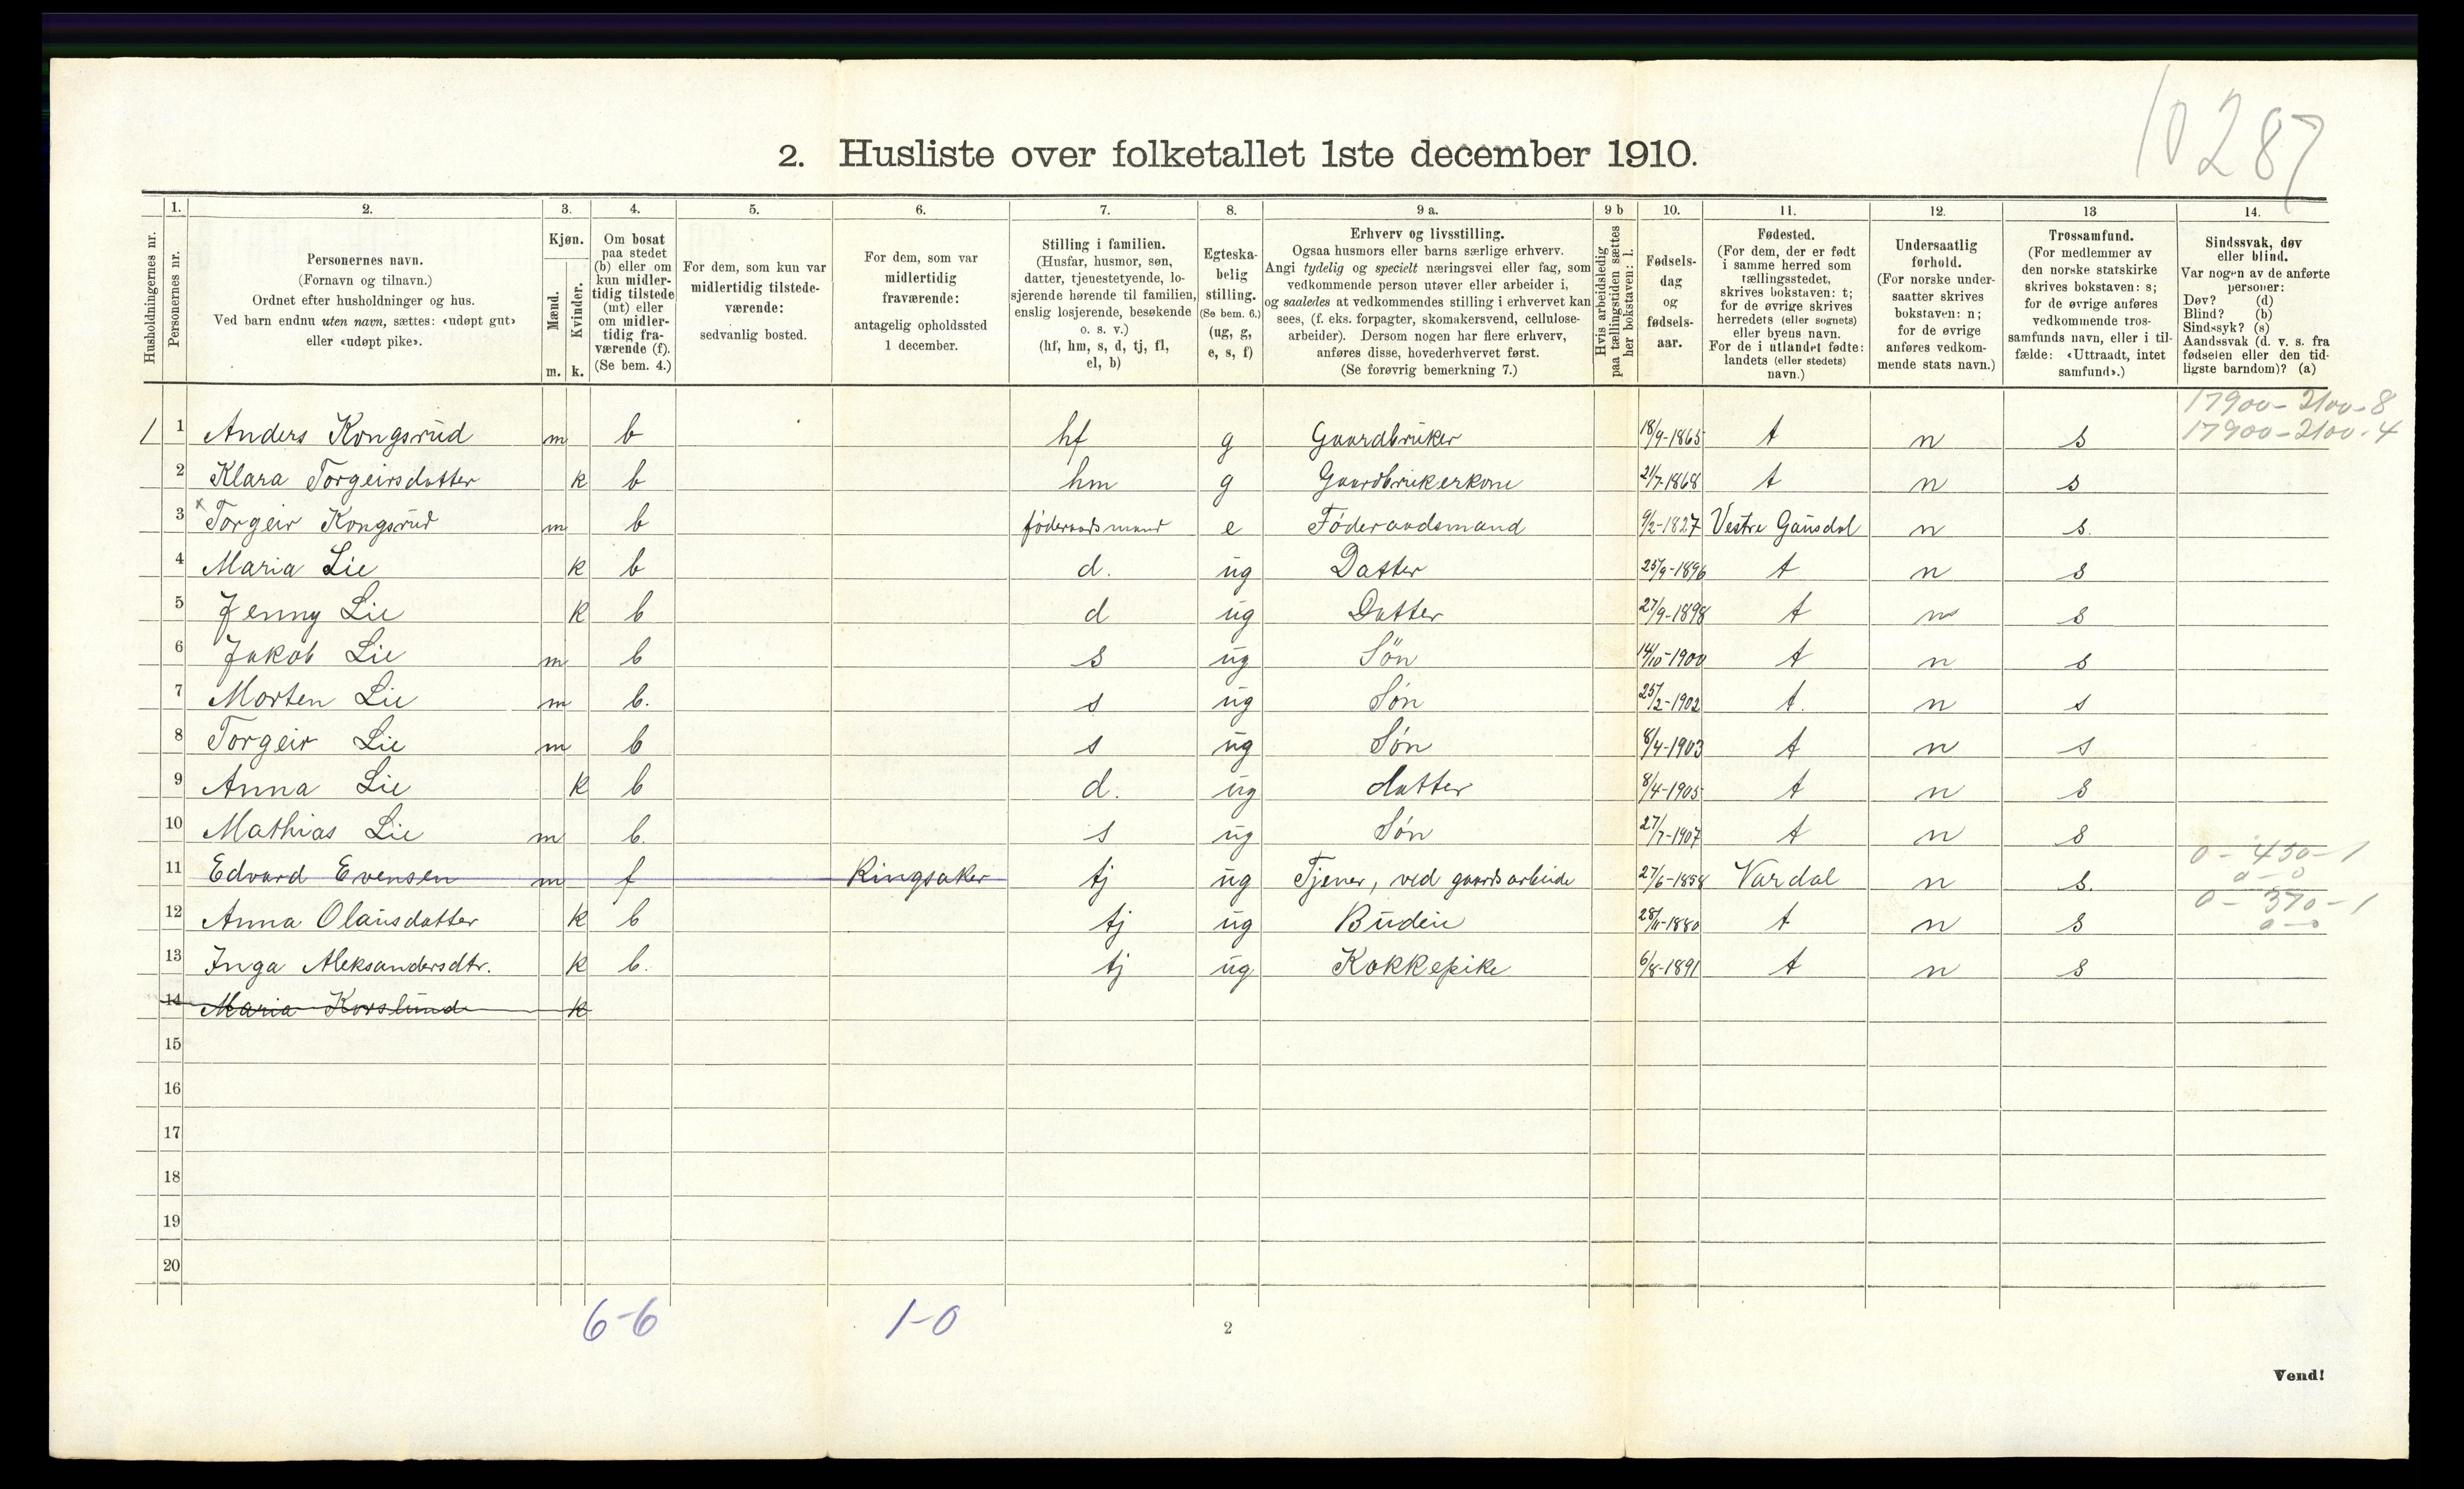 10287
2. Husliste over folketallet 1ste december 1910.
Husholdningernes nr.
1. Personernes nr.
2. Personernes navn.
(Fornavn og tilnavn.)
Ordnet efter husholdninger og hus.
Ved barn endnu uten navn, sættes: «udøpt gut»
eller «udøpt pike».
3. Kjøn.
Mænd. m.
Kvinder. k.
4. Om bosat
paa stedet
(b) eller om
kun midler-
tidig tilstede
(mt) eller
om midler-
tidig fra-
værende (f).
(Se bem. 4.)
5. For dem, som kun var
midlertidig tilstede-
værende:
sedvanlig bosted.
6. For dem, som var
midlertidig
fraværende:
antagelig opholdssted
1 december.
7. Stilling i familien.
(Husfar, husmor, søn,
datter, tjenestetyende, lo-
sjerende hørende til familien,
enslig losjerende, besøkende
o. s. v.)
(hf, hm, s, d, tj, fl,
el, b)
8. Egteska-
belig
stilling.
(Se bem. 6.)
(ug, g,
e, s, f)
9 a. Erhverv og livsstilling.
Ogsaa husmors eller barns særlige erhverv.
Angi tydelig og specielt næringsvei eller fag, som
vedkommende person utøver eller arbeider i,
og saaledes at vedkommendes stilling i erhvervet kan
sees, (f. eks. forpagter, skomakersvend, cellulose-
arbeider). Dersom nogen har flere erhverv,
anføres disse, hovederhvervet først.
(Se forøvrig bemerkning 7.)
9 b Hvis arbeidsledig
paa tællingstiden sættes
her bokstaven: l.
10. Fødsels-
dag
og
fødsels-
aar.
11. Fødested.
(For dem, der er født
i samme herred som
tællingsstedet,
skrives bokstaven: t;
for de øvrige skrives
herredets (eller sognets)
eller byens navn.
For de i utlandet fødte:
landets (eller stedets)
navn.)
12. Undersaatlig
forhold.
(For norske under-
saatter skrives
bokstaven: n;
for de øvrige
anføres vedkom-
mende stats navn.)
13 Trossamfund.
(For medlemmer av
den norske statskirke
skrives bokstaven: s;
for de øvrige anføres
vedkommende tros-
samfunds navn, eller i til-
fælde: «Uttraadt, intet
samfund».)
14. Sindssvak, døv
eller blind.
Var nogen av de anførte
personer:
Døv? (d)
Blind? (b)
Sindssyk? (s)
Aandssvak (d. v. s. fra
fødselen eller den tid-
ligste barndom)? (a)
17900-2100-8
1 1 Anders Kongsrud m b hf g Gaardbruker 18/9-1865 t n s 17900-2100-4
2 Klara Torgeirsdatter k b hm g Gaardbrukerkone 21/7-1868 t n s
3 x Torgeir Kongsrud m b føderaadsmand e Føderaadsmand 9/2-1827 Vestre Gausdal n s.
4 Maria Lie k b d. ug Datter 25/9-1896 t n s
5 Jenny Lie k b d ug Datter 27/9-1898 t n s
6 Jakob Lie m b s ug Søn 14/10-1900 t n s
7 Morten Lie m b. s ug Søn 25/2-1902 t. n s
8 Torgeir Lie m b s ug Søn 8/4-1903 t n s
9 Anna Lie k b d. ug datter 8/4-1905 t n s
10 Mathias Lie m b. s ug Søn 27/7-1907 t n s
0-450-1
11 Edvard Evensen m f Ringsaker tj ug Tjener, ved gaardsarbeide 27/6-1858 Vardal n s. 0-0
0-370-1
12 Anna Olausdatter k b tj ug Budeie 28/11-1880 t n s 0-0
13 Inga Aleksandersdtr. k b. tj ug Kokkepike 6/8-1891 t n s
14 Maria Korslunde k
15
16
17
18
19
20
6-6 1-0
2
Vend!